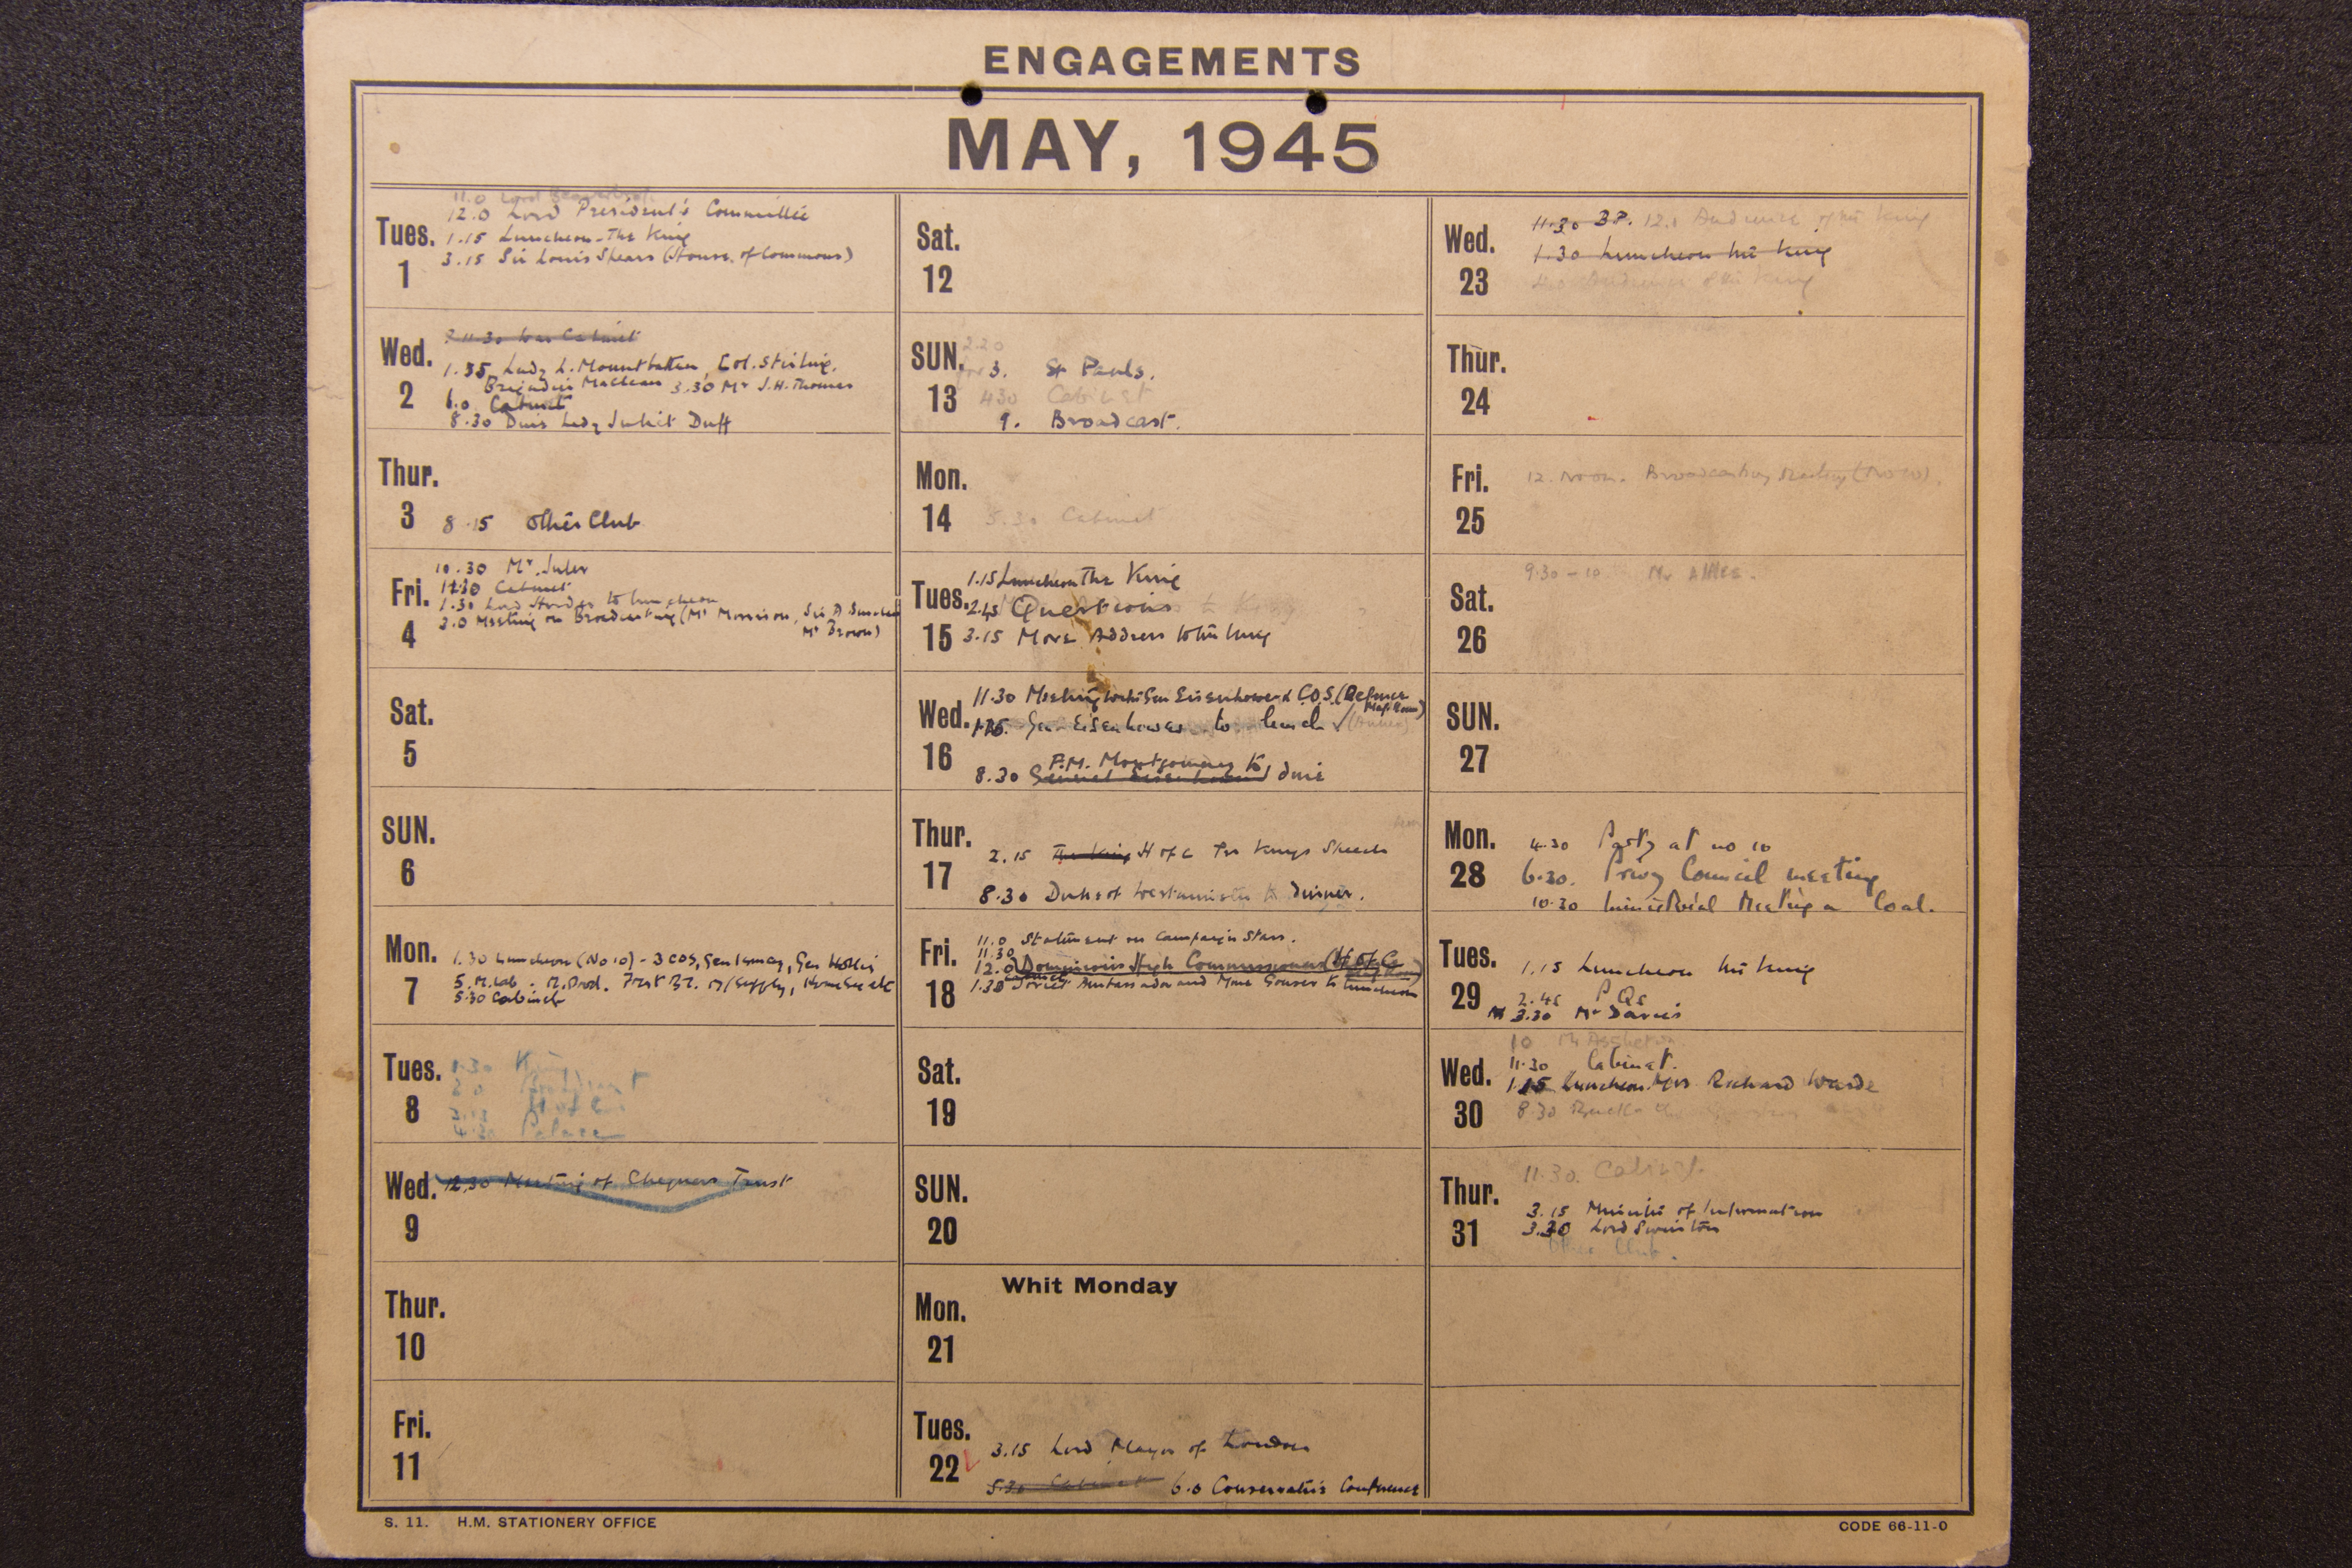 ENGAGEMENTS
MAY, 1945
Tues.
1
11.0 Lord Beaverbrook
12.0 Lord President's Committee
1.15 Luncheon - The King
3.15 Sir Louis Spears (House of Commons)
Wed.
2
? 11.30 War Cabinet
1.35 Lady L. Mountbatten, Col. Stirling,
Brigadier Maclean 3.30 Mr J.H. Thomas
6.0 Cabinet
8.30 Dine Lady Juliet Duff
Thur.
3
8.15 Other Club
Fri.
4
10.30 Mr.
Cabinet
1.30 Lord Horder to luncheon
3.0 Meeting on Broadcasting (Mr Morrison, Sir A
Mr Brown)
Sat.
5
SUN.
6
Mon.
7
1.30 Luncheon (No 10) - 3 COS, Gen Ismay, Gen Hollis
5. M. Lab. M. Prod. Prest BT. M/Supply, Home Sec etc
5.30 Cabinet
Tues.
8
1.30 King
3.0 Broadcast
3.15 H of C
4.30 Palace
Wed.
9
12.30 Meeting of Chequers Trust
Thur.
10
Fri.
11
Sat.
12
SUN.
13
2.30
for 3. St Pauls.
4.30 Cabinet
9. Broadcast.
Mon.
14
5.30 Cabinet
Tues.
15
1.15 Luncheon The King
2.45 Questions
3.15 Move Address to the King
Wed.
16
11.30 Meeting with Gen Eisenhower & C.O.S. (Defence
Map Room)
1.15 Gen Eisenhower to lunch ✓ (Annexe)
F.M. Montgomery to
8.30 General Eisenhower dine
Thur.
17
2.15 The King H of C The Kings Speech
8.30 Duke of Westminster to dinner.
Fri.
18
11.0 Statement on Campaign Stars.
11.30
12.0 Dominions High Commissioners (H of C
Map Room)
1.30 Soviet Ambassador and Mme Gousev to luncheon
Sat.
19
SUN.
20
Whit Monday
Mon.
21
Tues.
22
3.15 Lord Mayor of London
5.30 Cabinet 6.0 Conservative Conference
Wed.
23
11.30 12.0 Audience of the King
1.30 Luncheon the King
4.0 Audience of the King
Thur.
24
Fri.
25
12. Noon. Broadcasting Meeting (No 10).
Sat.
26
9.30 - 10 Mr
SUN.
27
Mon.
28
4.30 Party at no 10
6.30. Privy Council meeting
10.30 Ministerial Meeting on Coal.
Tues.
29
1.15 Luncheon the King
2.45 P Qs
3.30 Mr Davies
Wed.
30
10 Mr Assheton
11.30 Cabinet.
1.15 Luncheon. Mrs Richard Warde
8.30
Thur.
31
11.30. Cabinet.
3.15 Minister of Information
3.30 Lord Swinton
Other Club.
S. 11. H.M. STATIONERY OFFICE
CODE 66-11-0